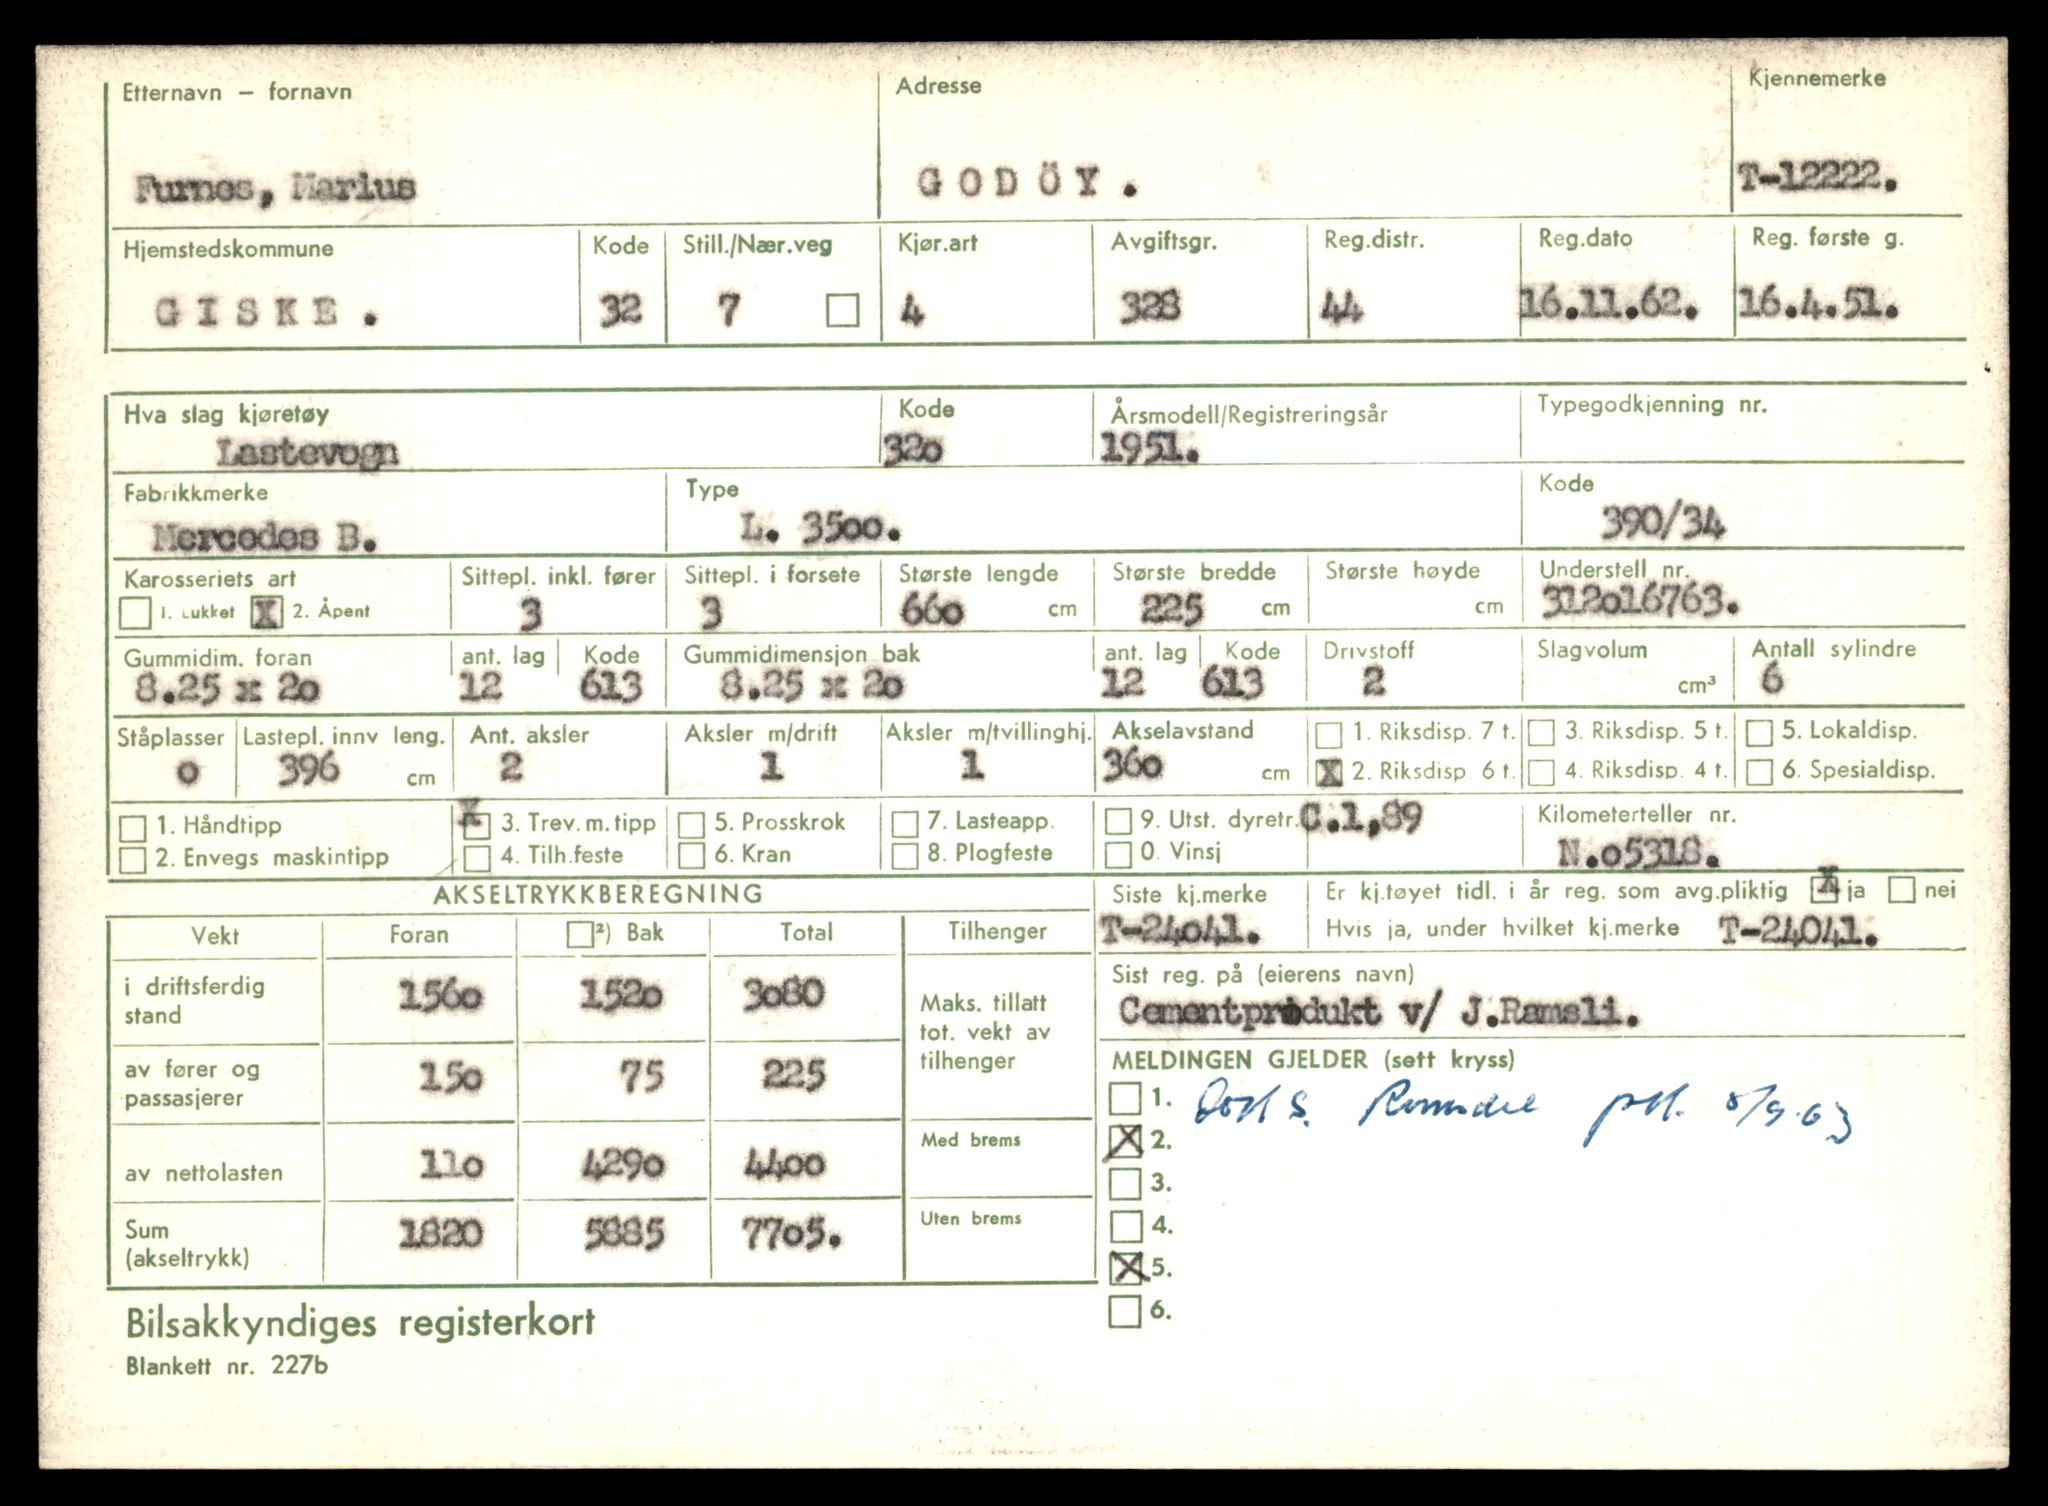 Etternavn – fornavn Adresse Kjennemerke
Furnes, Marius GODÖY. T-12222.
Hjemstedskommune Kode Still./Nær.veg Kjør.art Avgiftsgr. Reg.distr. Reg.dato Reg. første g.
GISKE. 32 7 4 328 44 16.11.62. 16.4.51.
Hva slag kjøretøy Kode Årsmodell/Registreringsår Typegodkjenning nr.
Lastevogn 320 1951.
Fabrikkmerke Type Kode
Mercedes B. L. 3500. 390/34
Karosseriets art Sittepl. inkl. fører Sittepl. i forsete Største lengde Største bredde Største høyde Understell nr.
1. Lukket X 2. Åpent 3 3 660 cm 225 cm cm 312016763.
Gummidim. foran ant. lag Kode Gummidimensjon bak ant. lag Kode Drivstoff Slagvolum Antall sylindre
8.25 x 20 12 613 8.25 x 20 12 613 2 cm³ 6
Ståplasser Lastepl. innv leng. Ant. aksler Aksler m/drift Aksler m/tvillinghj. Akselavstand 1. Riksdisp. 7 t. 3. Riksdisp. 5 t. 5. Lokaldisp.
0 396 cm 2 1 1 360 cm X 2. Riksdisp. 6 t. 4. Riksdisp. 4 t. 6. Spesialdisp.
1. Håndtipp X 3. Trev. m. tipp 5. Prosskrok 7. Lasteapp. 9. Utst. dyretr. C.1,89 Kilometerteller nr.
2. Envegs maskintipp 4. Tilh.feste 6. Kran 8. Plogfeste 0. Vinsj N.05318.
AKSELTRYKKBEREGNING Siste kj.merke Er kj.tøyet tidl. i år reg. som avg.pliktig X ja nei
Vekt Foran ²) Bak Total Tilhenger T-24041. Hvis ja, under hvilket kj.merke T-24041.
i driftsferdig stand 1560 1520 3080 Maks. tillatt tot. vekt av tilhenger
Sist reg. på (eierens navn)
Cementprodukt v/ J.Ramsli.
av fører og passasjerer 150 75 225
MELDINGEN GJELDER (sett kryss)
1. Romsdal pst. 8/9.63
X 2.
av nettolasten 110 4290 4400 Med brems
3.
Sum (akseltrykk) 1820 5885 7705. Uten brems
4.
X 5.
6.
Bilsakkyndiges registerkort
Blankett nr. 227b